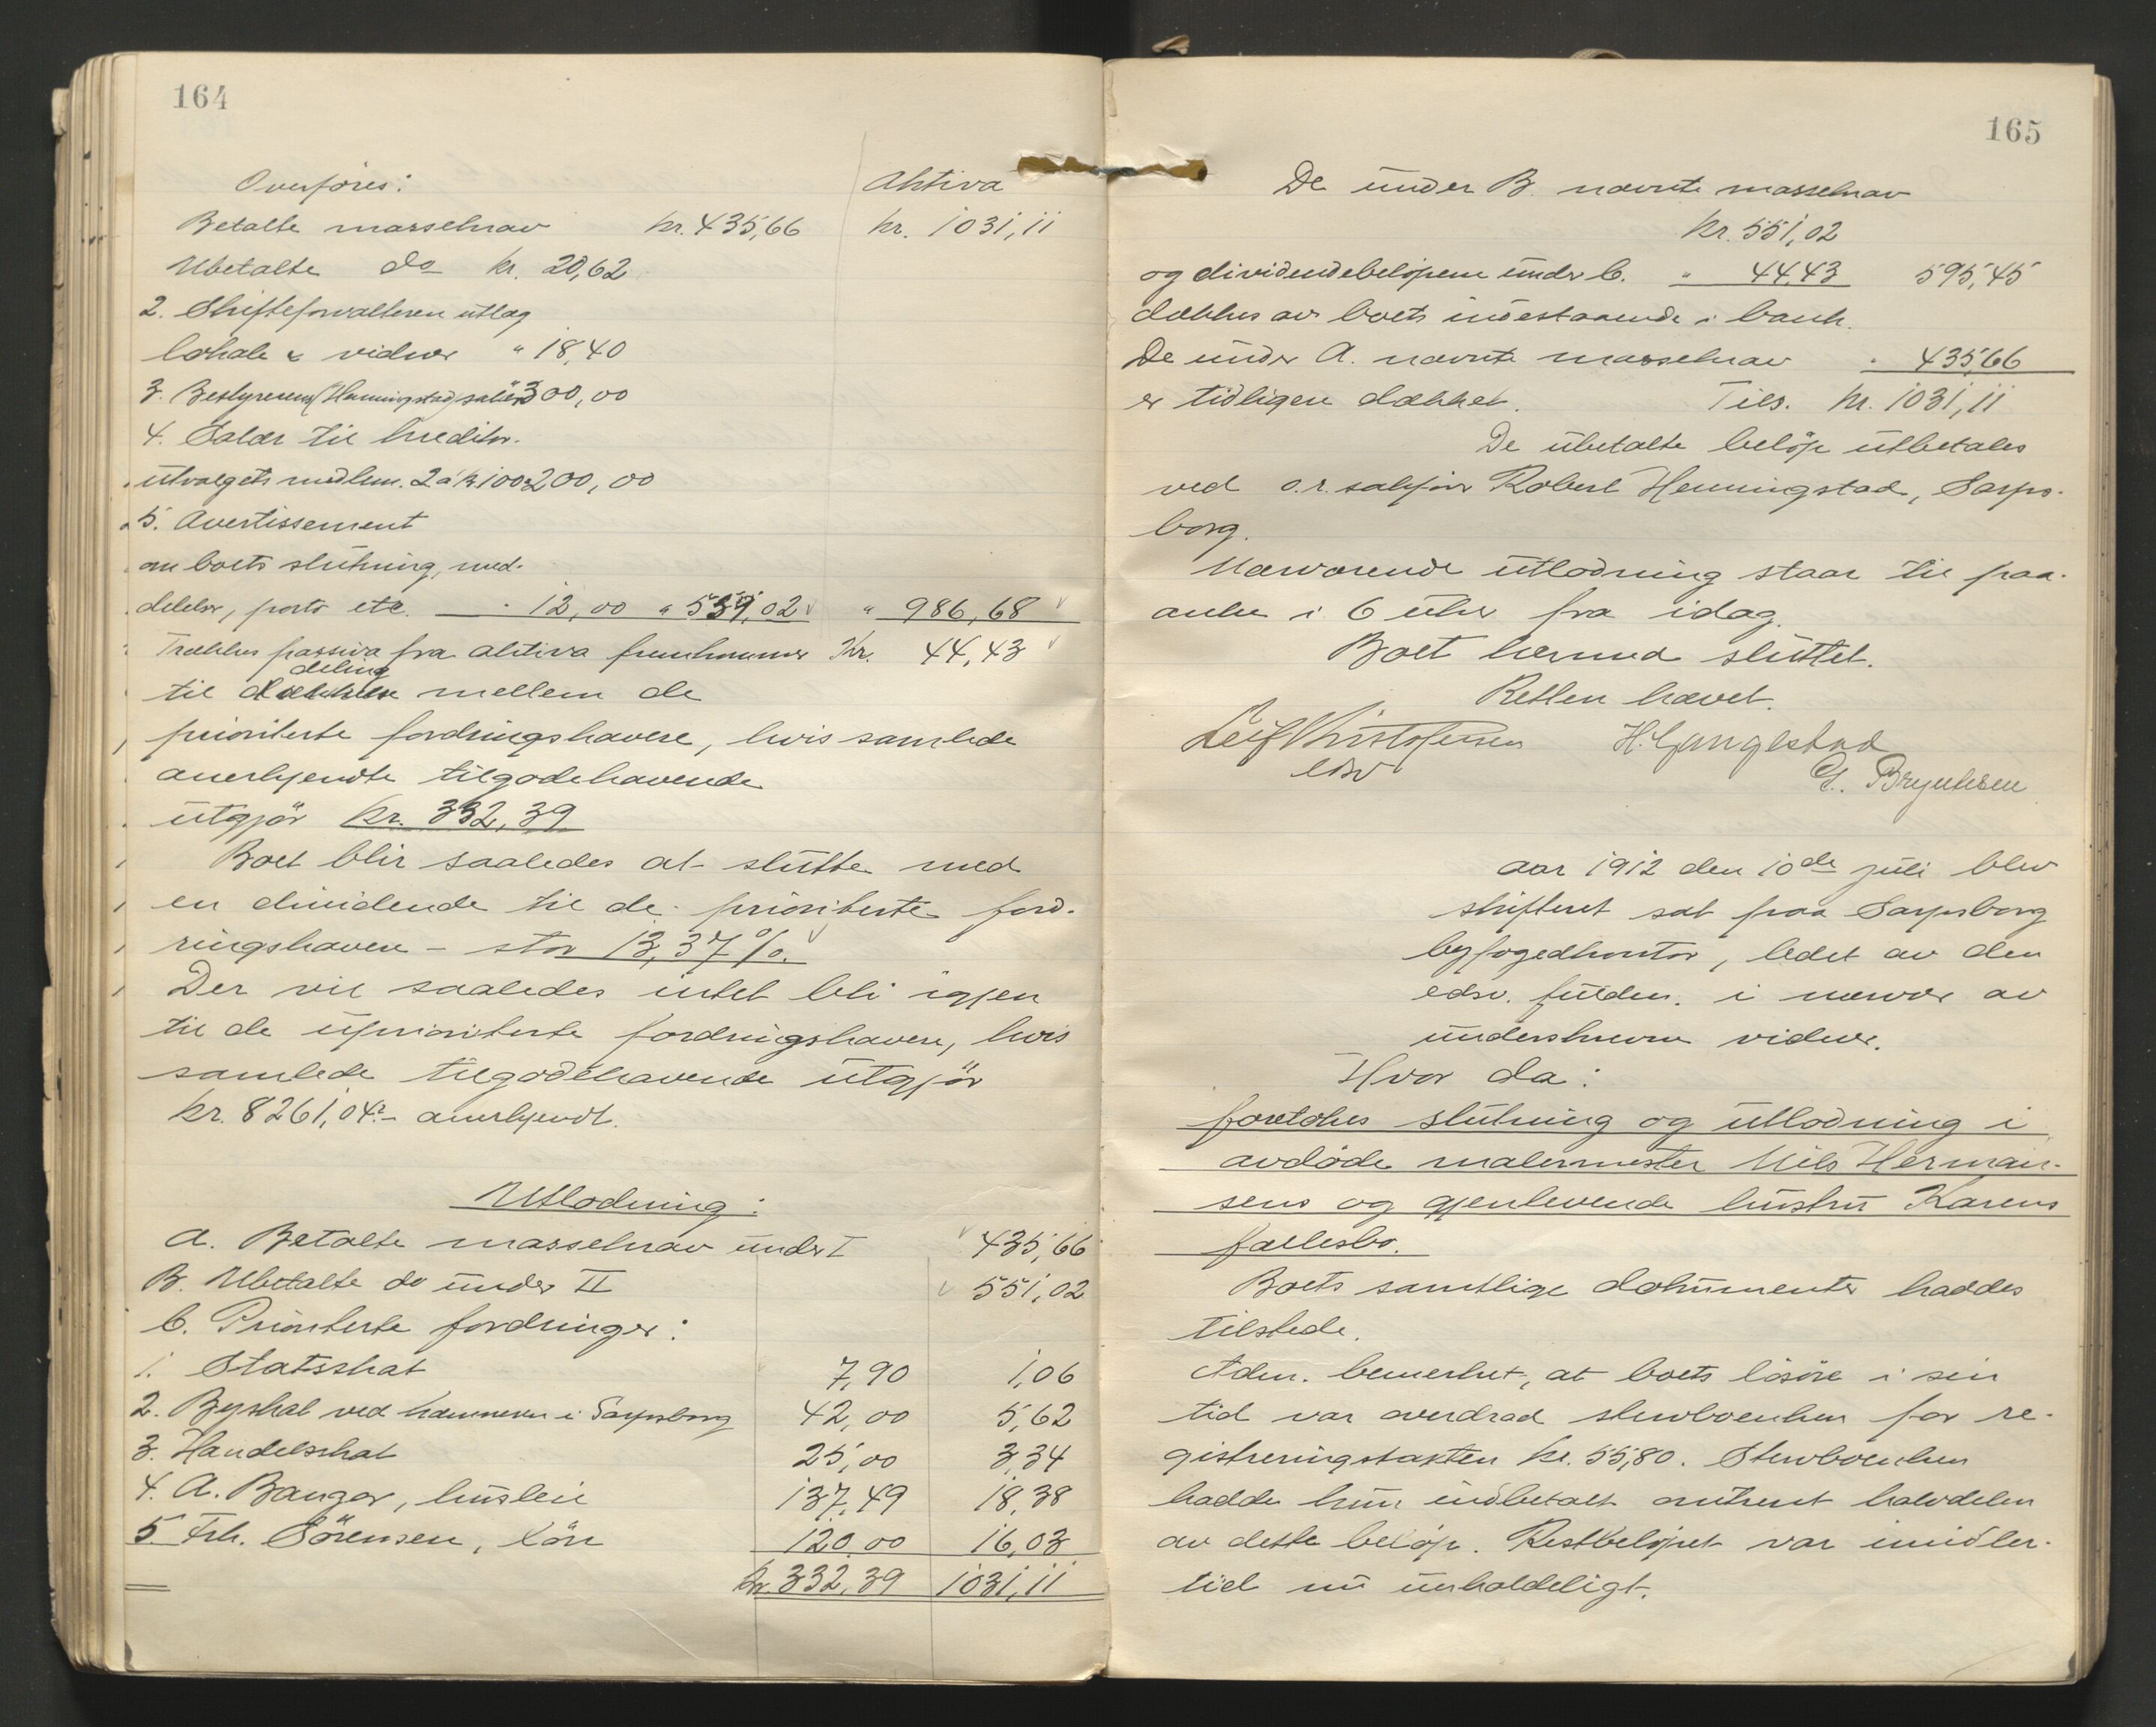 164
Overføres: Aktiva
Betalte massekrav kr. 435,66 kr. 1031,11
Ubetalte do kr. 20,62
2. Skifteforvalteren utlæg
lokale & vidner " 18,40
3. Bestyrerens (Henningstad) salær 300,00
4. Salær til kreditor-
utvalgets medlem. 2 à kr 100 = 200,00
5. Avertissement
om boets slutning, med-
delelser, porto etc. " 12,00 " 551,02 " 986,68
Trækkes passiva fra aktiva fremkommer Kr. 44,43
deling
til mellem de
prioriterte fordringshavere, hvis samlede
anerkjendte tilgodehavende
utgjør kr. 332,39
Boet blir saaledes at slutte med
en dividende til de prioriterte ford-
ringshavere - stor 13,37 %.
Der vil saaledes intet bli igjen
til de uprioriterte fordringshavere, hvis
samlede tilgodehavende utgjør
kr. 8261,04 - anerkjendt.
Utlodning:
A. Betalte massekrav under I 435,66
B. Ubetalte do under II 551,02
C. Prioriterte fordringer:
1. Statsskat 7,90 1,06
2. Byskat ved kæmneren i Sarpsborg 42,00 5,62
3. Handelsskat 25,00 3,34
4. A. Banger, husleie 137,49 18,38
5. Frk. Sörensen, lön 120,00 16,03
Kr. 332,39 1031,11
165
De under B. nævnte massekrav
kr. 551,02
og dividendebeløpene under C. " 44,43 595,45
dækkes av boets indestaaende i bank.
De under A. nævnte massekrav " 435,66
er tidligere dækket. Tils. kr. 1031,11
De ubetalte beløp utbetales
ved o.r. sakfører Robert Henningstad, Sarps-
borg.
Nærværende utlodning staar til paa-
anke i 6 uker fra idag.
Boet hermed sluttet.
Retten hævet.
Leif Kristofersen H. Gangestad
edsv G. Bryntesen
Aar 1912 den 10de juli blev
skifteret sat paa Sarpsborg
byfogedkontor, ledet av den
edsv. fuldm. i nærvær av
underskrevne vidner.
Hvor da:
foretokes slutning og utlodning i
avdøde malermester Nils Herman-
sens og gjenlevende hustru Karens
fællesbo.
Boets samtlige dokumenter haddes
tilstede.
Adm. bemerket, at boets løsøre i sin
tid var overdrad stervboenken for re-
gistreringstaxten kr. 55,80. Stervboenken
hadde kun indbetalt omtrent halvdelen
av dette beløp. Restbeløpet var imidler-
tid nu uerholdeligt.